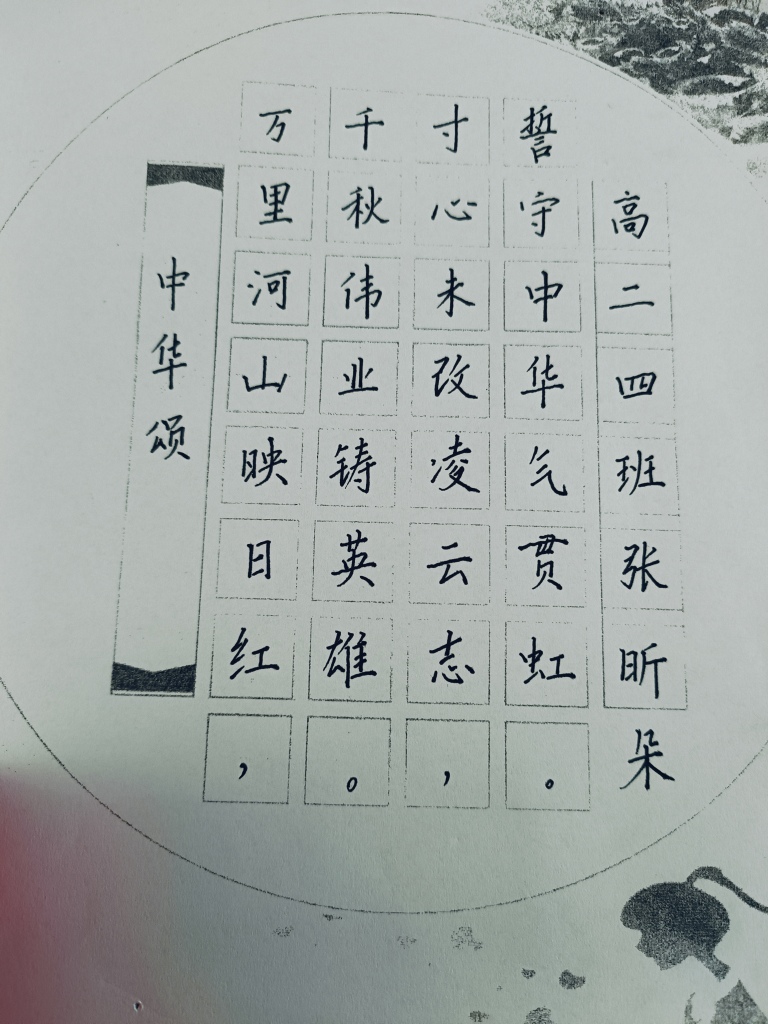 中华颂
万里河山映日红，
千秋伟业铸英雄。
寸心未改凌云志，
誓守中华气贯虹。
高二四班张昕朵